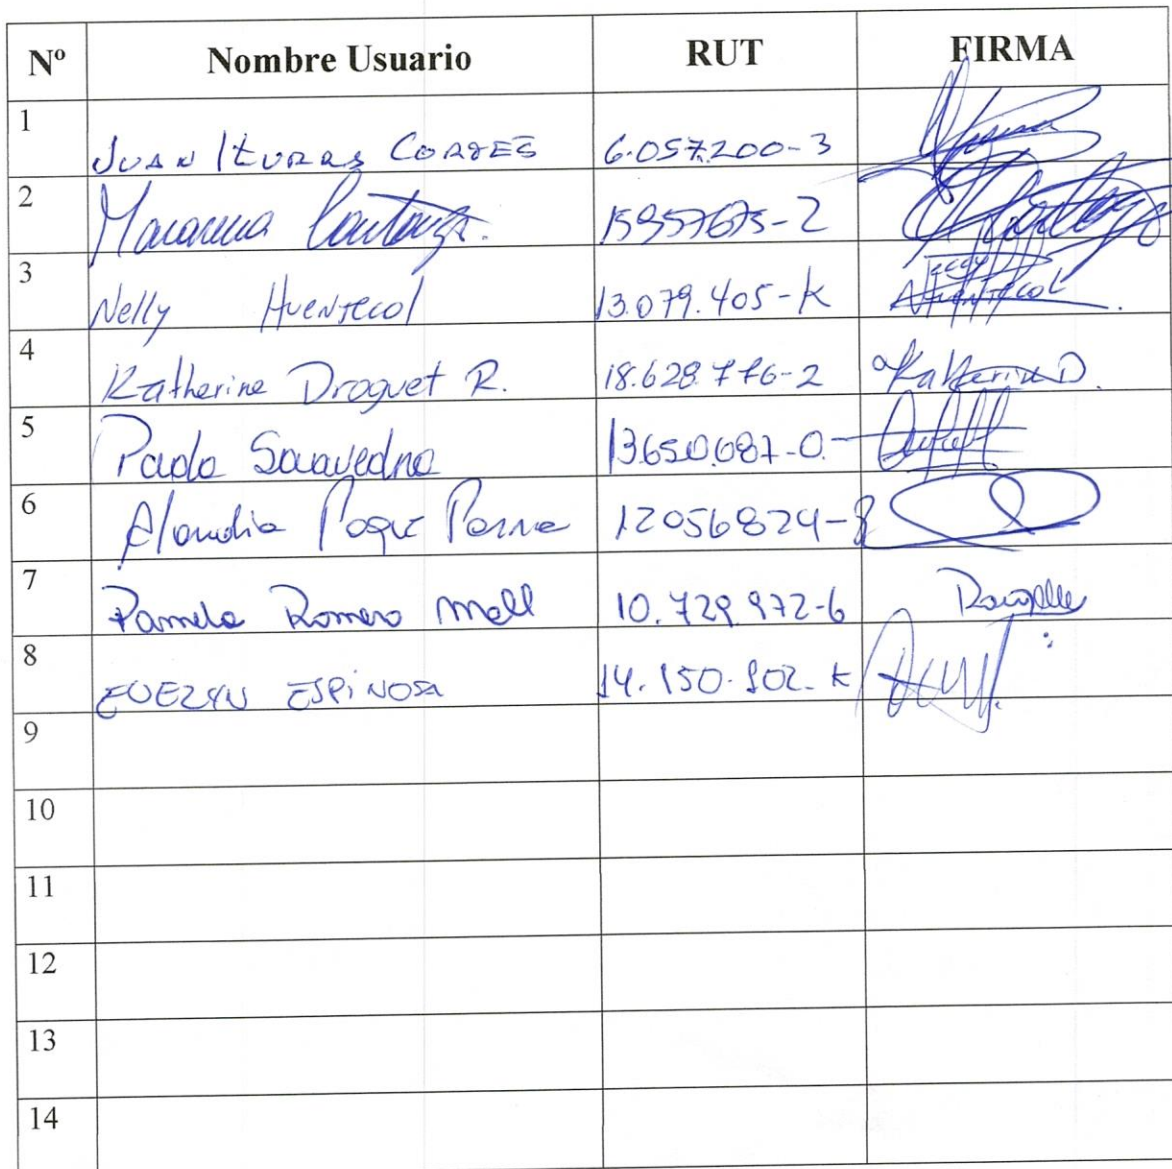 Nº Nombre Usuario RUT FIRMA
1 JUAN ITURRA CORTES 6.057.200-3
2 Macarena 15957675-2
3 Nelly Huentecol 13.079.405-K Huentecol
4 Katherine Droguet R. 18.628.776-2 Katherine D.
5 Paola Saavedra 13.650.687-0
6 Claudia 12056824-8
7 Pamela Romero Moll 10.729.972-6
8 EVELYN ESPINOSA 14.150.902-K
9
10
11
12
13
14